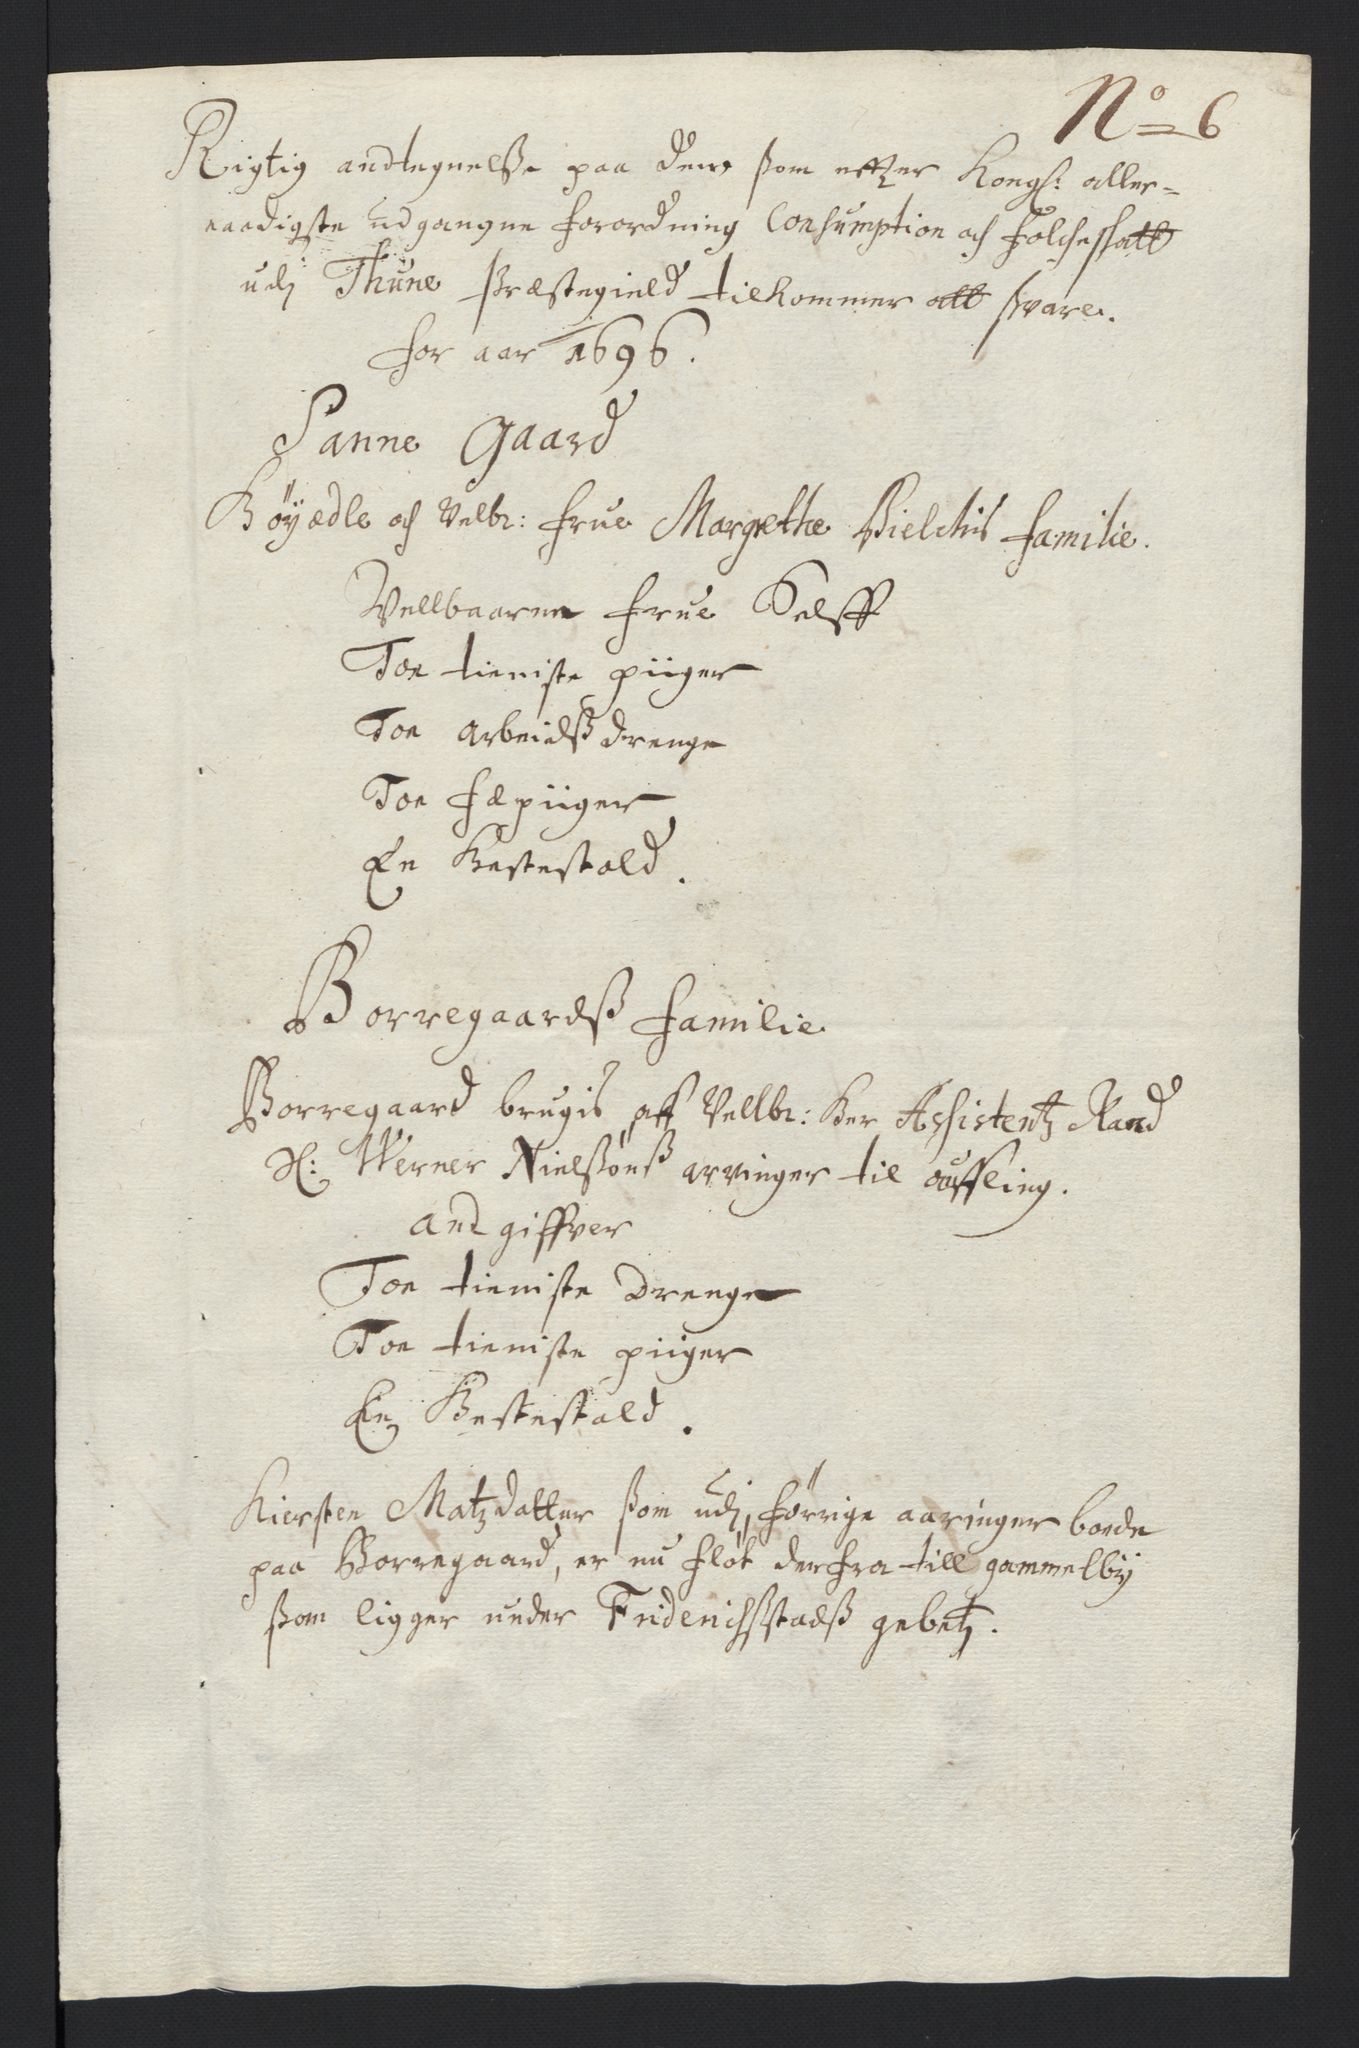 No 6
Rigtig andtegnelsse paa dem ssom effter Kongl: aller-
naadigste udgangne forordning Consumption och folcheskatt
udj Thune Præstegield tilkommer att suare.
for aar 1696.
Sanne Gaard
Höyædle och Velbr: frue Margrethe Bielchis familie.
Vellbaarne frue Selff
Toe tieniste piiger
Toe arbeidss drenge
Toe fæpiiger
En Hestestald.
Borregaardss familie
Borregaard brugis aff Vellbr: Her Assistentz Raad
Sl: Werner Nielssönss arvinger til auffling.
and giffver
Toe tieniste Drenge
Toe tieniste piiger
En Hestestald.
Kiersten Matzdatter ssom udj, forrige aaringer boede
paa Borregaard, er nu fløt derfra till gammelbÿ
ssom ligger under Friderichsstadss gebetz.